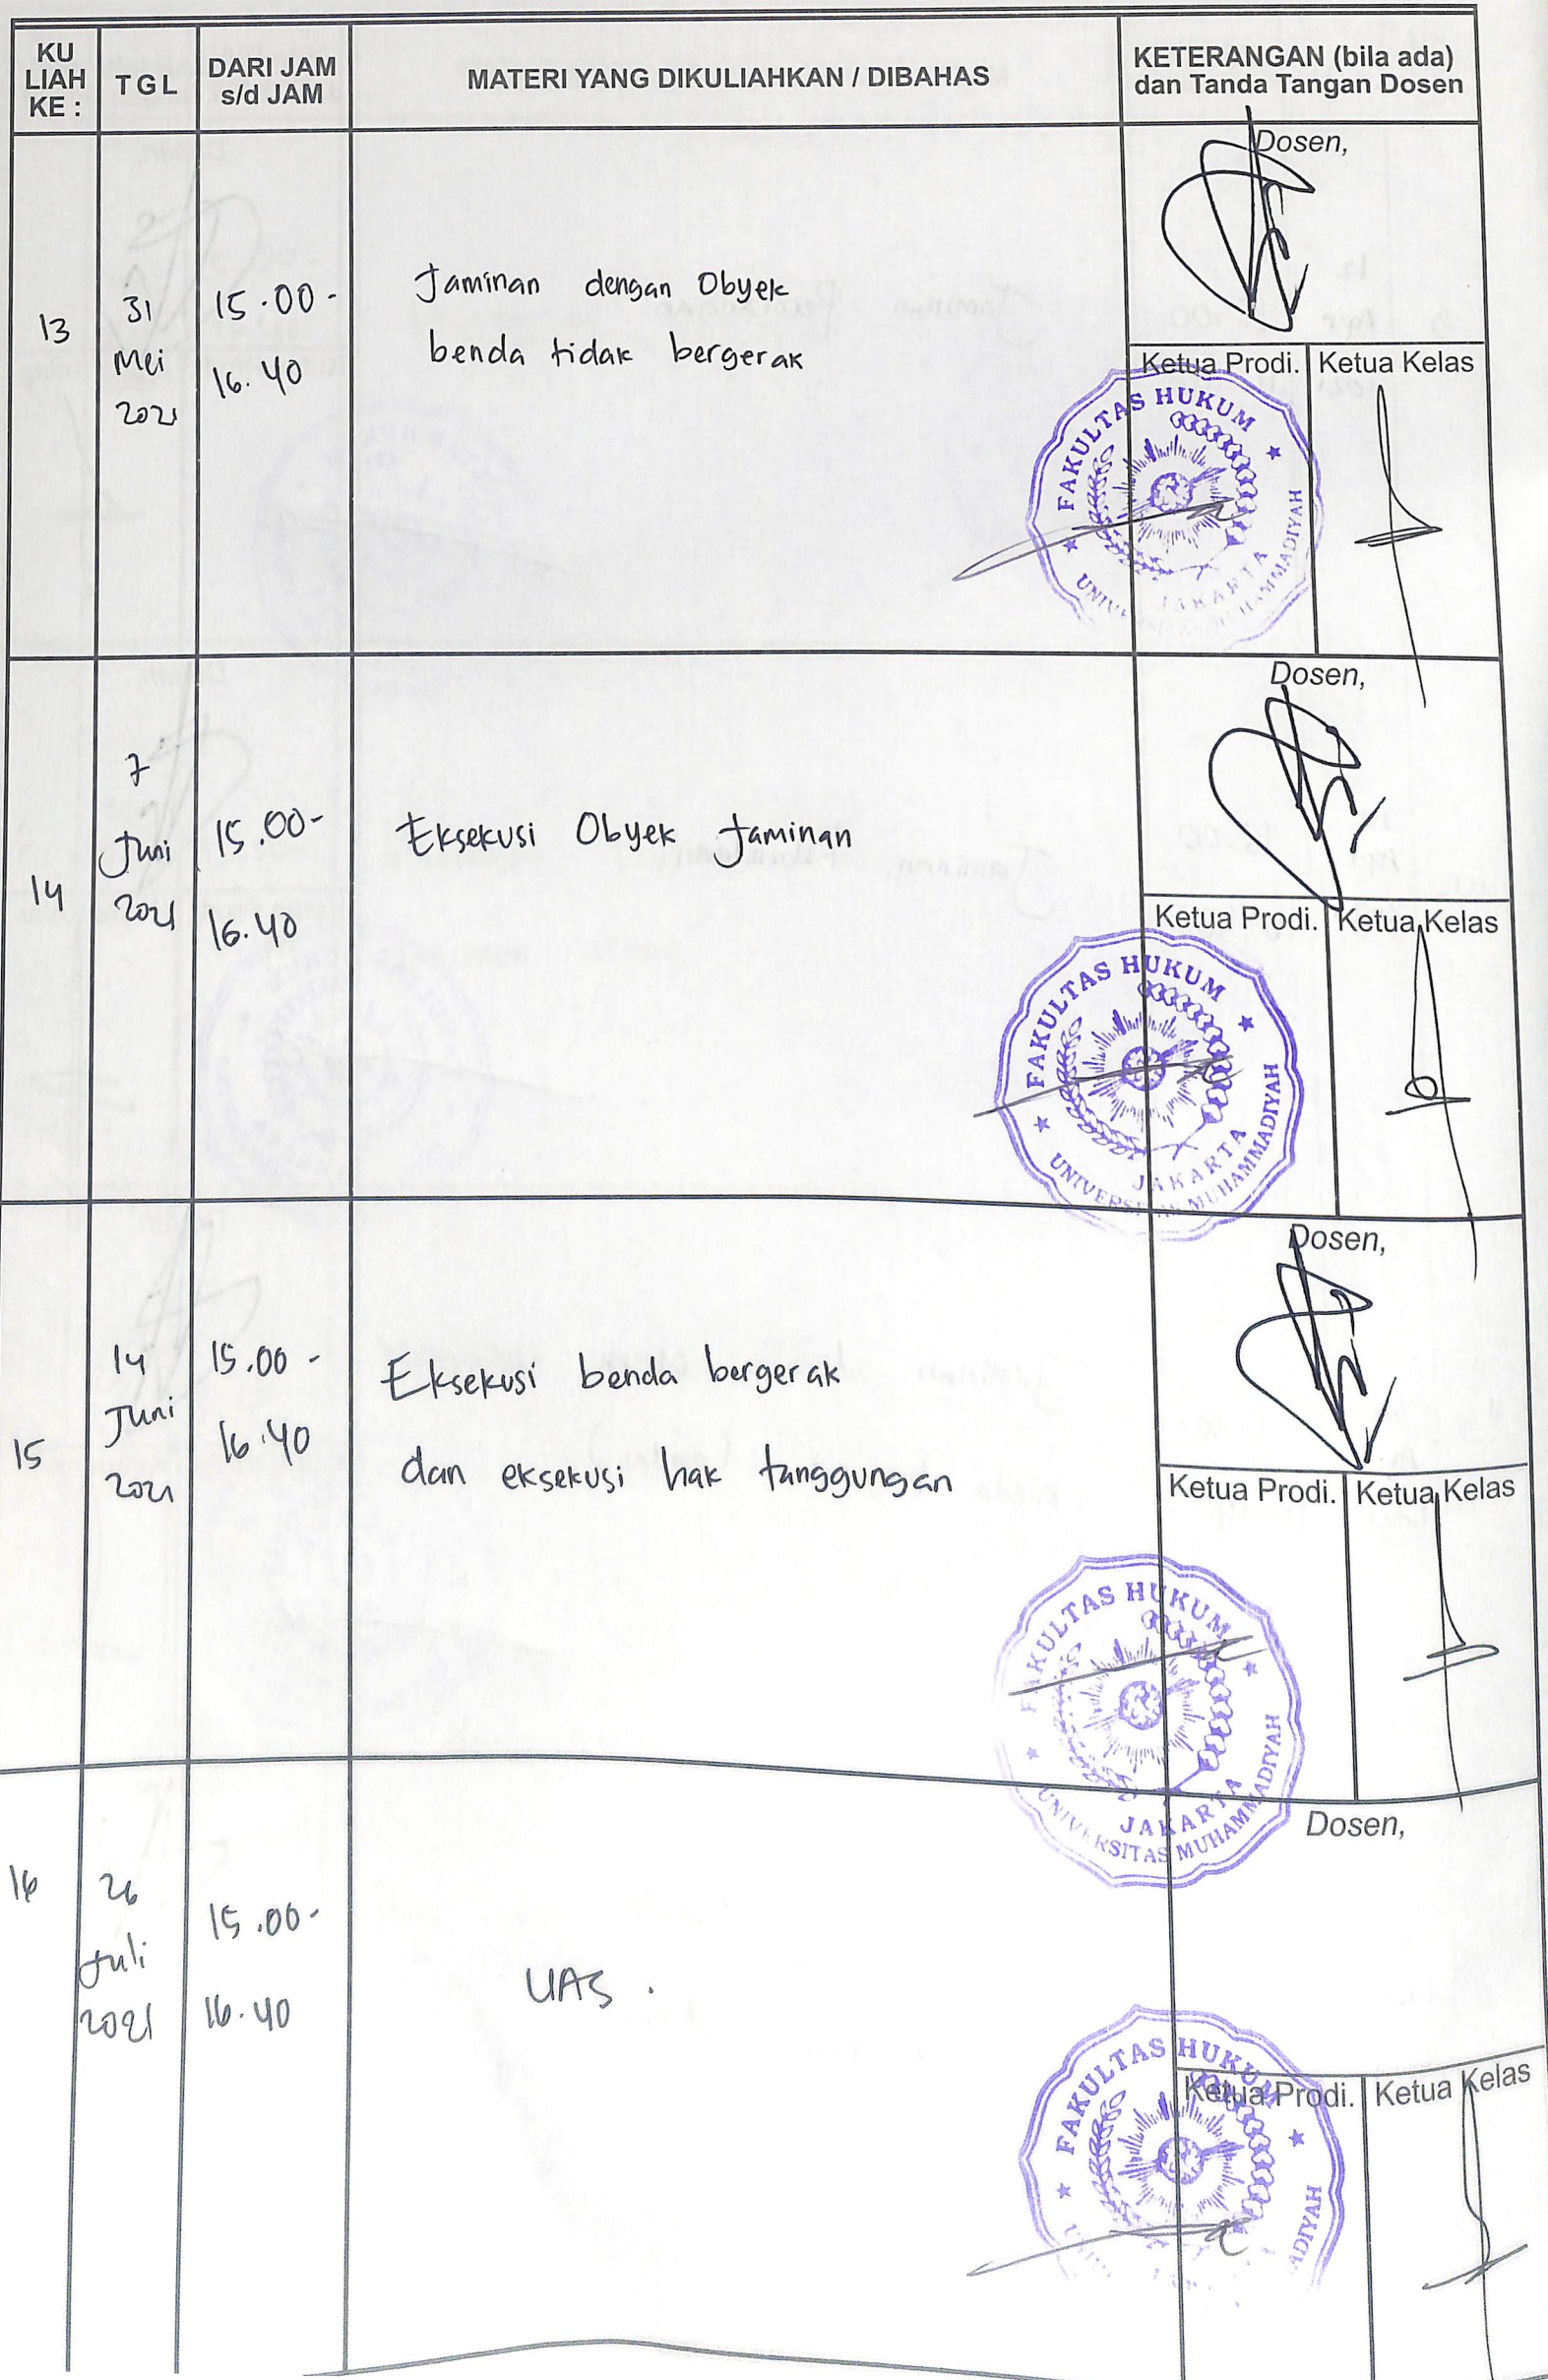 KU
LIAH
KE :
TGL
DARI JAM
s/d JAM
MATERI YANG DIKULIAHKAN / DIBAHAS
KETERANGAN (bila ada)
dan Tanda Tangan Dosen
13
31
Mei
2021
15.00-
16.40
Jaminan dengan Obyek
benda tidak bergerak
Dosen,
Ketua Prodi.
Ketua Kelas
FAKULTAS HUKUM
JAKARTA
MUHAMMADIYAH
14
7
Juni
2021
15.00-
16.40
Eksekusi Obyek Jaminan
Dosen,
Ketua Prodi.
Ketua Kelas
FAKULTAS HUKUM
JAKARTA
UNIVERSITAS MUHAMMADIYAH
15
14
Juni
2021
15.00 -
16.40
Eksekusi benda bergerak
dan eksekusi hak tanggungan
Dosen,
Ketua Prodi.
Ketua Kelas
FAKULTAS HUKUM
JAKARTA
UNIVERSITAS MUHAMMADIYAH
16
26
Juli
2021
15.00-
16.40
UAS .
Dosen,
Ketua Prodi.
Ketua Kelas
FAKULTAS HUKUM